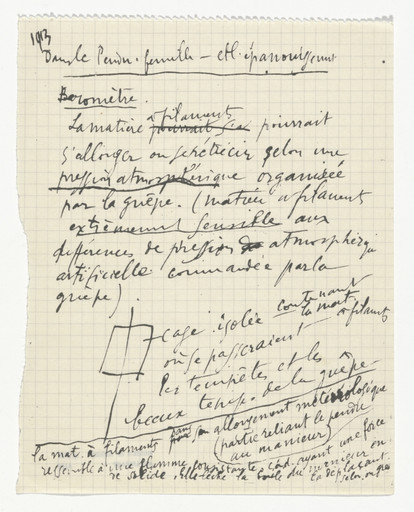 1913
Dans le Pendu femelle — et l'épanouissement
Baromètre.
La matière à filaments pourrait
s'allonger ou se rétrécir selon une
pression atmosphérique organisée
par la guêpe. (matière à filaments
extrêmement sensible aux
différences de pression atmosphériq
artificielle commandée par la
guêpe).
cage isolée contenant
la mat. à filaments
où se passeraient
les tempêtes et les
beaux temps de la guêpe
la mat. à filaments dans son allongement météorologique
(partie reliant le pendu
au manieur)
ressemble à une flamme consistante c. à d. ayant une force
de solide. elle lèche la boule du manieur en
la déplaçant